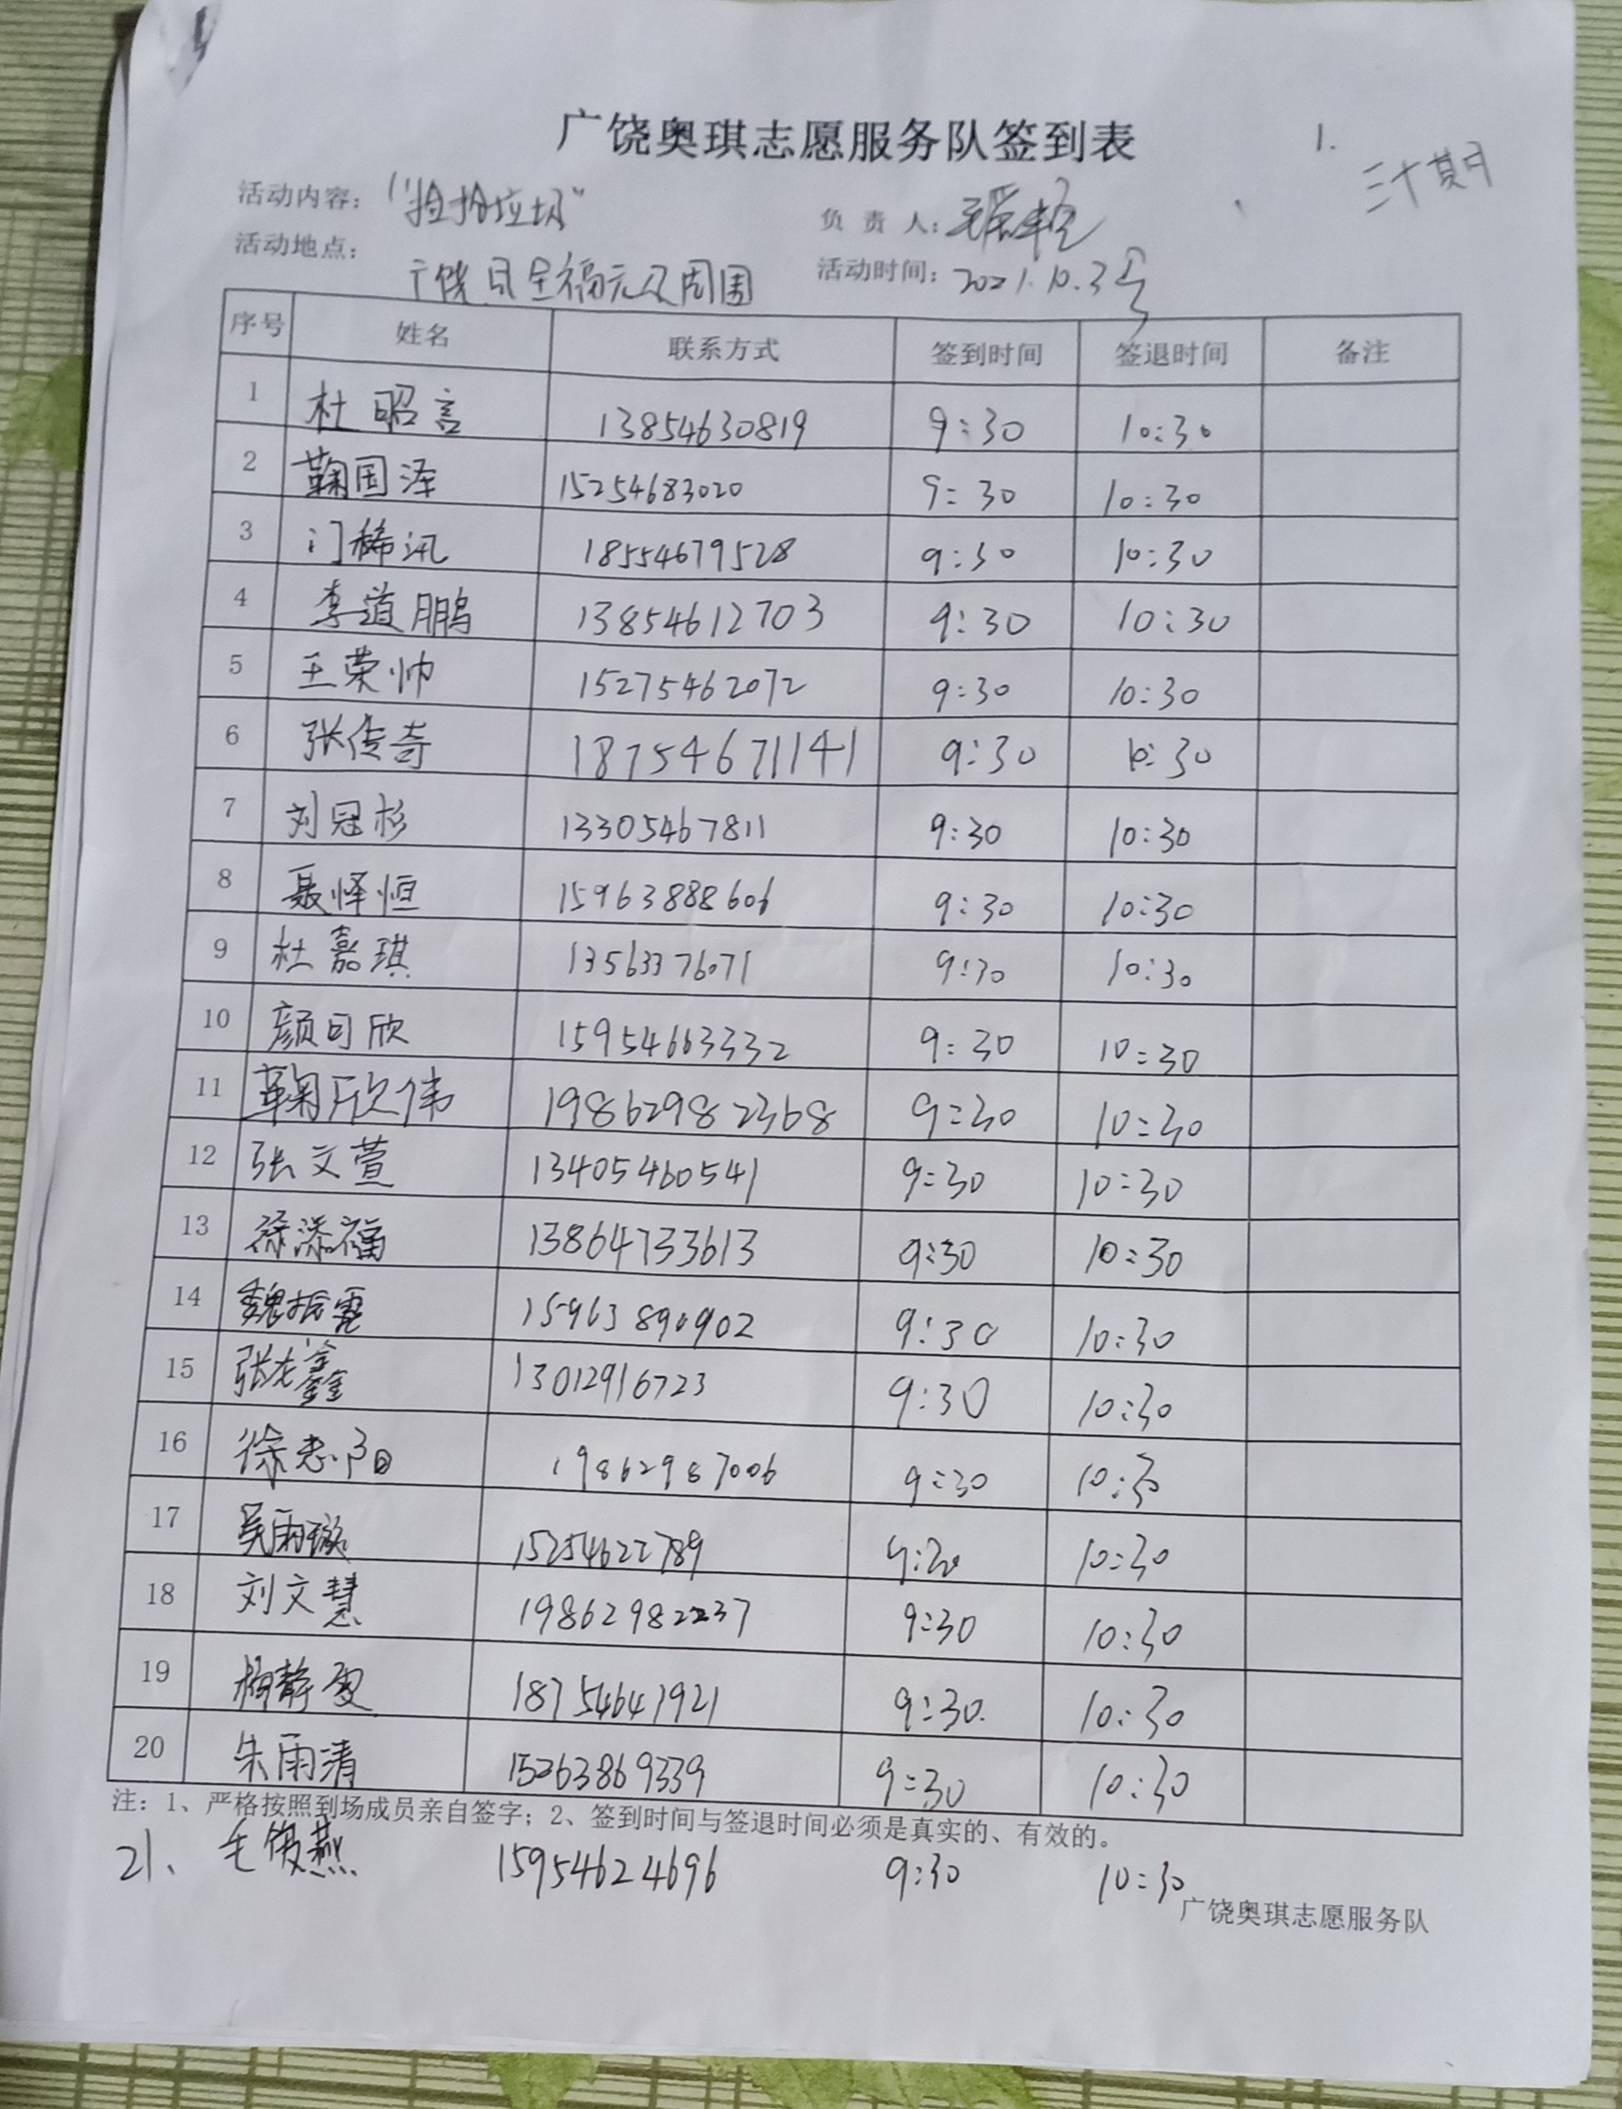 广饶奥琪志愿服务队签到表 1.
三十期
活动内容：“捡拾垃圾” 负 责 人：
活动地点： 广饶县全福元及周围 活动时间：2021.10.3号
序号 姓名 联系方式 签到时间 签退时间 备注
1 杜昭言 13854630819 9:30 10:30
2 鞠国泽 15254683020 9:30 10:30
3 门稀汛 18554679528 9:30 10:30
4 李道鹏 13854612703 9:30 10:30
5 王荣帅 15275462072 9:30 10:30
6 张传奇 18754671141 9:30 10:30
7 刘冠杉 13305467811 9:30 10:30
8 聂怿恒 15963888606 9:30 10:30
9 杜嘉琪 13563376071 9:30 10:30
10 颜可欣 15954663332 9:30 10:30
11 鞠欣伟 19862982368 9:30 10:30
12 张文萱 13405460541 9:30 10:30
13 徐添福 13864733613 9:30 10:30
14 魏振霓 15963890902 9:30 10:30
15 张龙鑫 13012916723 9:30 10:30
16 徐志阳 19862987006 9:30 10:30
17 吴雨璇 15254622789 9:30 10:30
18 刘文慧 19862982237 9:30 10:30
19 杨静雯 18754641921 9:30 10:30
20 朱雨清 15263869339 9:30 10:30
注：1、严格按照到场成员亲自签字；2、签到时间与签退时间必须是真实的、有效的。
21、 毛俊燕 15954624696 9:30 10:30
广饶奥琪志愿服务队